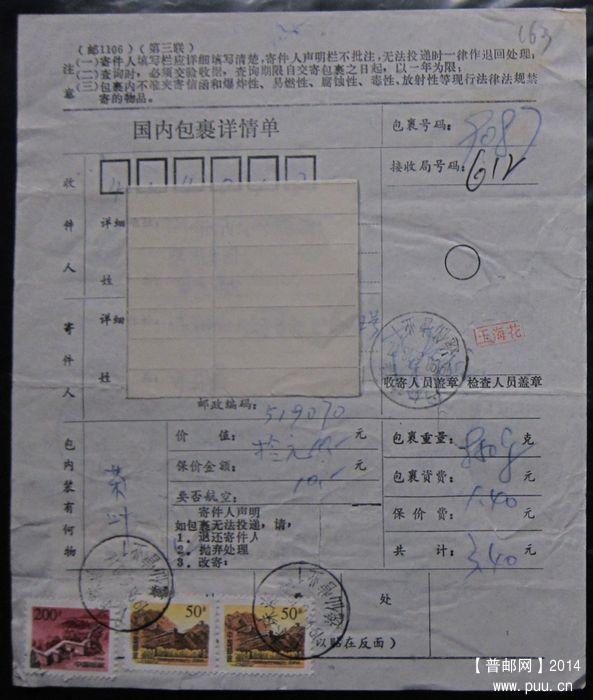 163
（邮1106）（第三联）
注意
（一）寄件人填写栏应详细填写清楚，寄件人声明栏不批注，无法投递时一律作退回处理；
（二）查询时，必须交验收据，查询期限自交寄包裹之日起，以一年为限；
（三）包裹内不准夹寄信函和爆炸性、易燃性、腐蚀性、毒性、放射性等现行法律法规禁
寄的物品。
国内包裹详情单
包裹号码：
接收局号码：612
收件人
详细
姓
寄件人
详细
姓
玉海花
收寄人员盖章 检查人员盖章
邮政编码：519070
包内装有何物
茶叶
价 值： 元
保价金额： 10.- 元
要否航空：
寄件人声明
如包裹无法投递，请，
1．退还寄件人
2．抛弃处理
3．改寄：
包裹重量： 克
包裹资费： 1.40 元
保价费： 元
共 计： 3.40 元
处
以贴在反面）
200分
50分
50分
【普邮网】2014
www.puu.cn